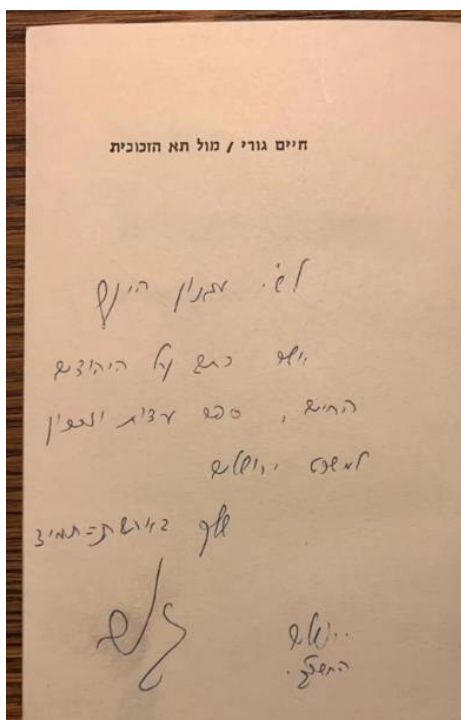 חיים גורי / מול תא הזכוכית
לש"י עגנון היקר
אשר כתב על היהודים
החיים, ספר עדות וזכרון
למשפט ירושלים
שלך תמיד
ירושלים